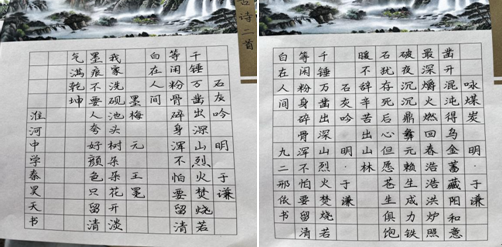 古诗二首
石灰吟 明 于谦
千锤万凿出深山烈火焚烧若
等闲粉骨碎身浑不怕要留清
白在人间
墨梅 元 王冕
我家洗砚池头树朵朵花开淡
墨痕不要人夸好颜色只留清
气满乾坤
淮河中学秦昊天书
咏煤炭 明 于谦
凿开混沌得乌金藏蓄阳和意
最深爝火燃回春浩浩洪炉照
破夜沉沉鼎彝元赖生成力铁
石犹存死后心但愿苍生俱饱
暖不辞辛苦出山林
石灰吟 明 于谦
千锤万凿出深山烈火焚烧若
等闲粉骨碎身浑不怕要留清
白在人间 九二邢依书